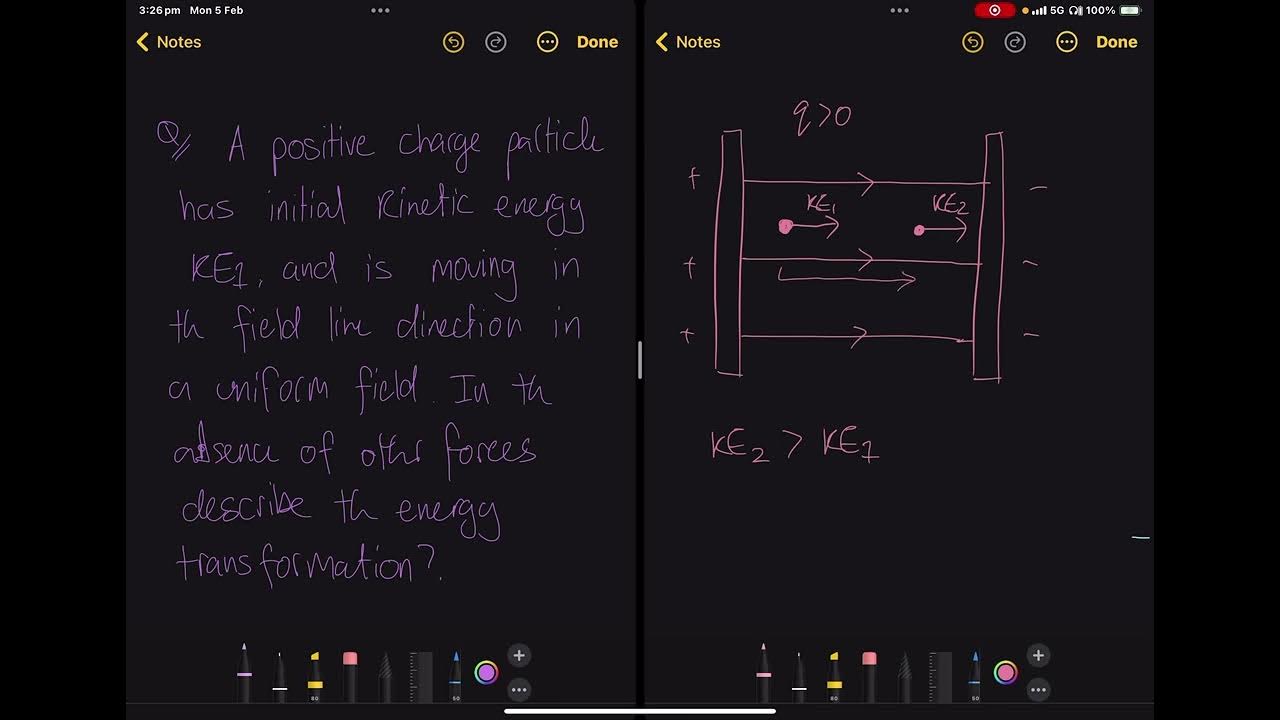 3:26 pm Mon 5 Feb
5G 100%
Notes
Done
Notes
Done
Q// A positive charge particle
has initial Kinetic energy
KE1, and is moving in
th field line direction in
a uniform field. In th
absence of other forces
describe th energy
transformation?
q>0
+ −
KE1 KE2
+ −
+ −
KE2 > KE1
80
50
80
50